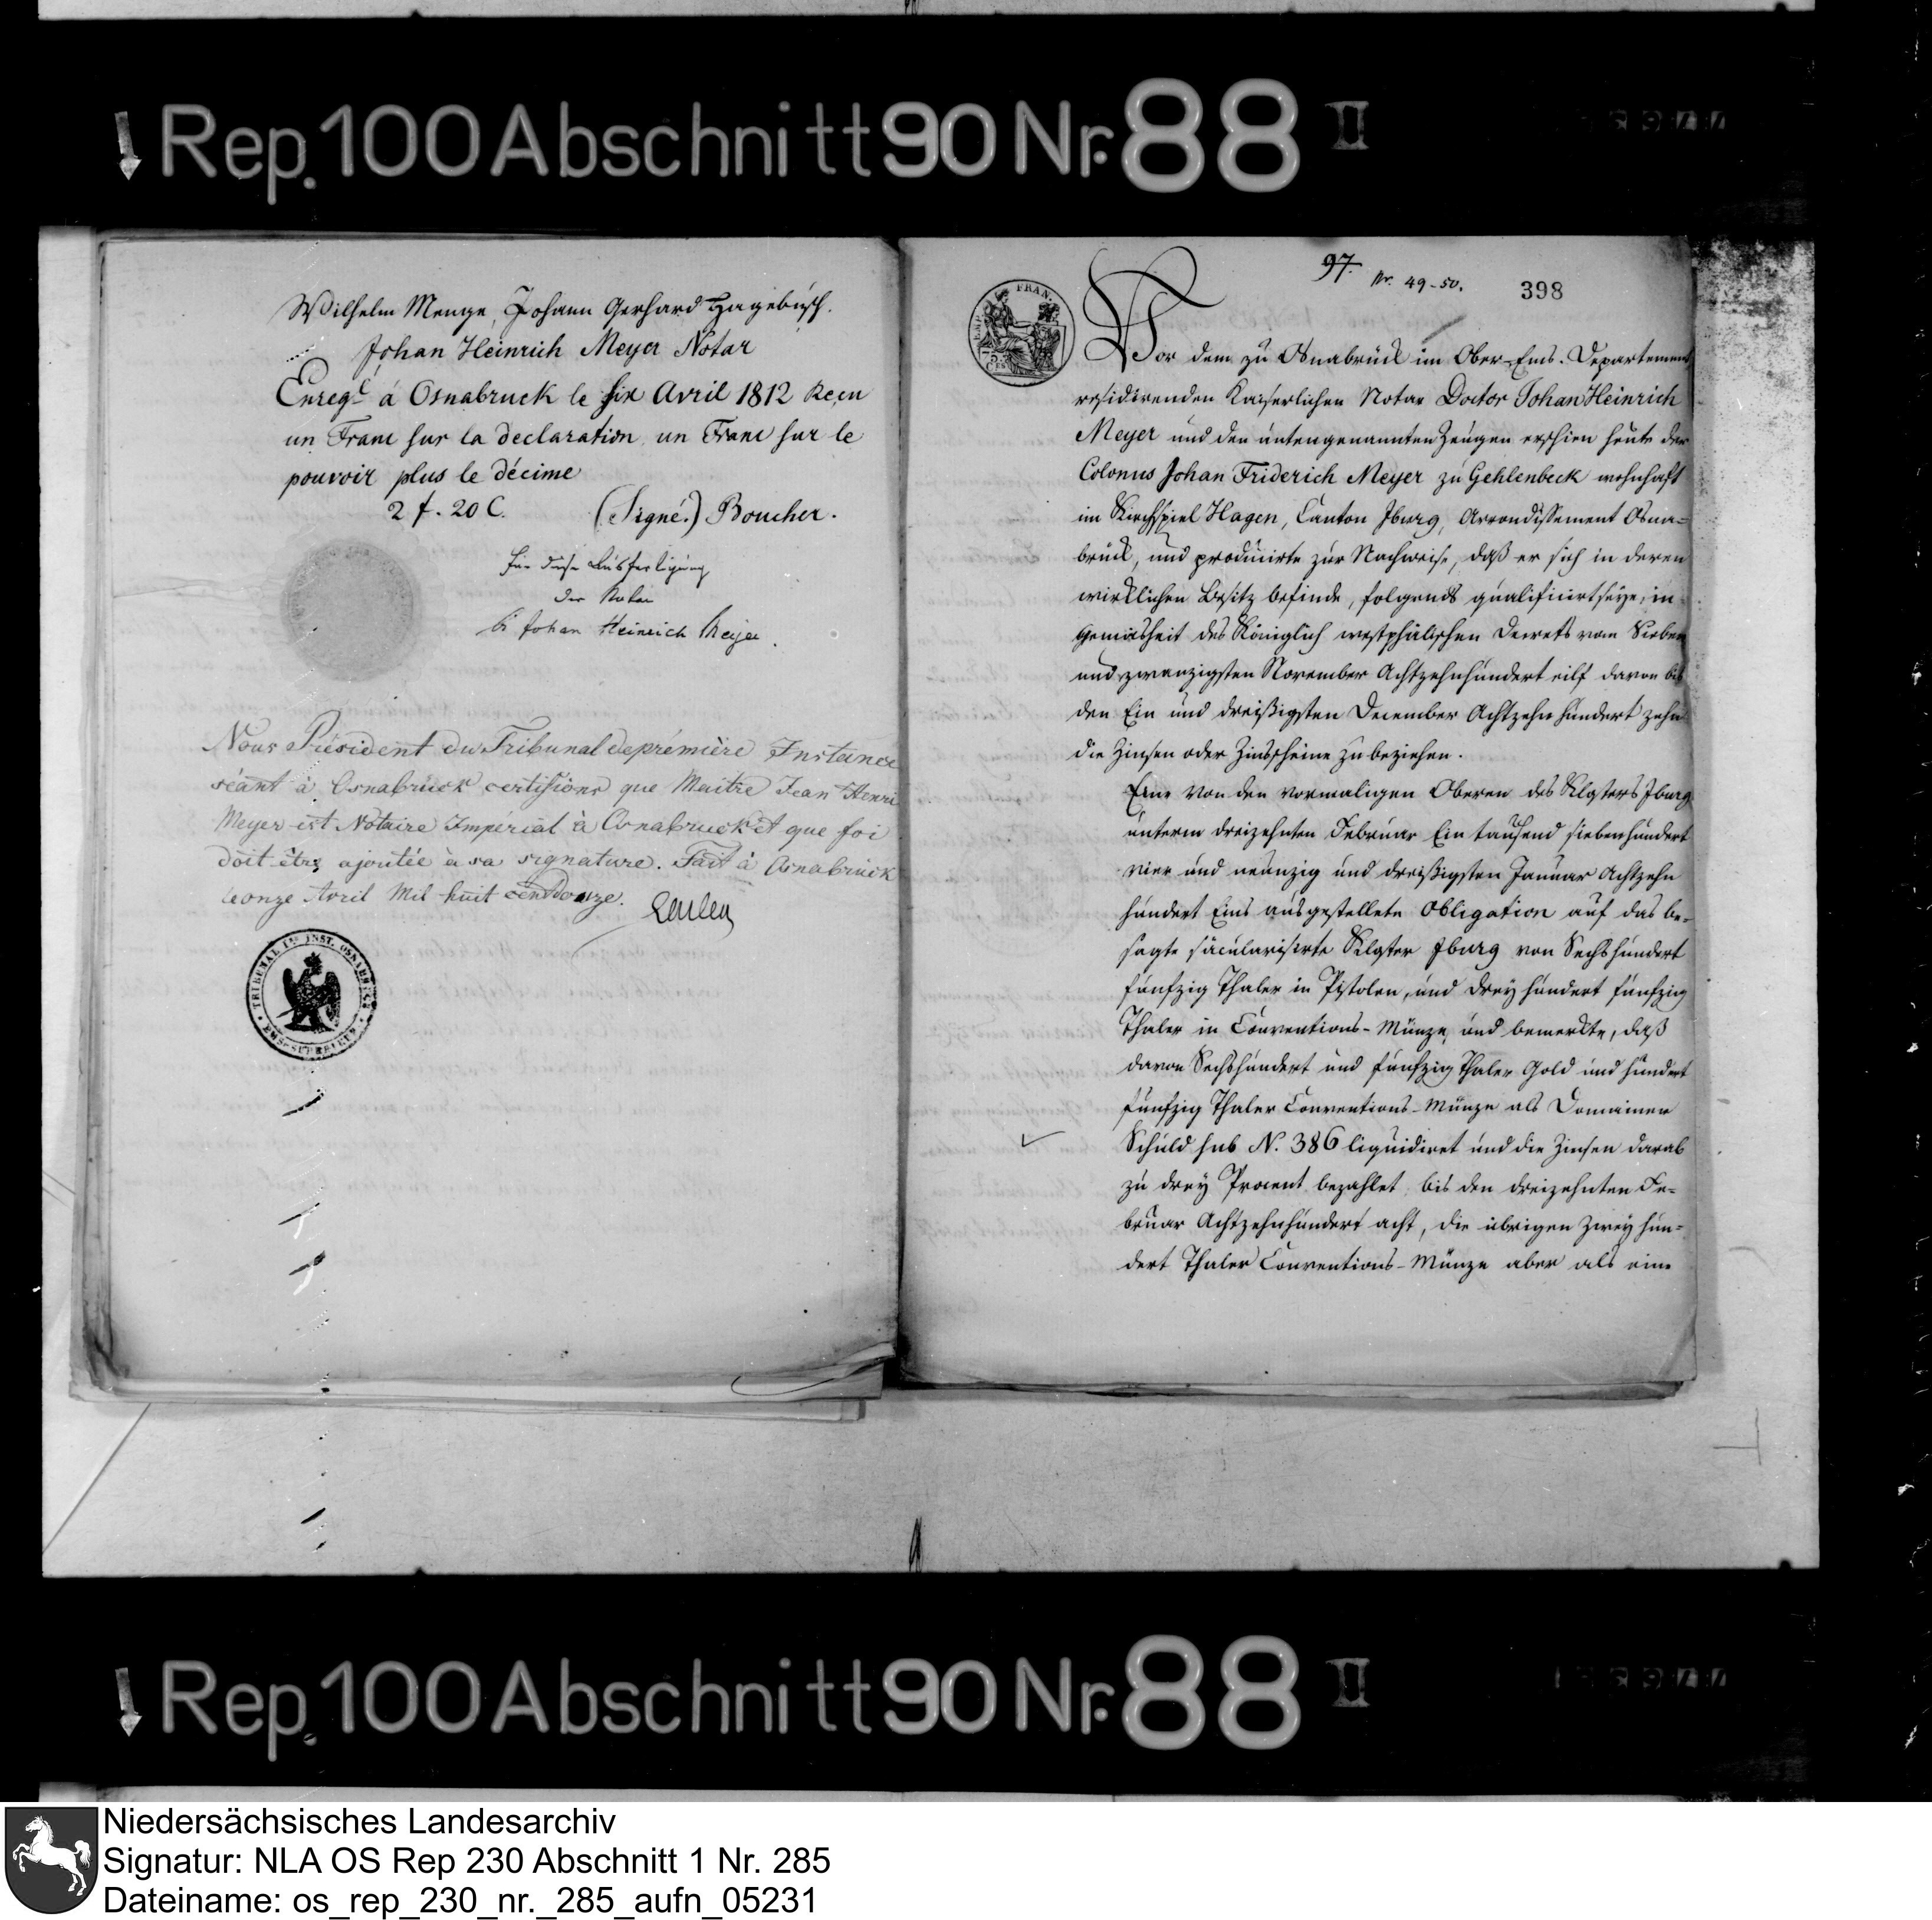 ↓ Rep. 100 Abschnitt 90 Nr. 88 II
Wilhelm Menge, Johann Gerhard Hagebusch.
Johan Heinrich Meyer Notar
Enregé à Osnabruck le six Avril 1812 Reçu
un Franc sur la declaration un Franc sur le
pouvoir plus le décime
2 f. 20 C. (Signé.) Boucher.
Für diese Ausfertigung
der Notar
Johan Heinrich Meyer.
Nous Président du Tribunal de prémière Instance
séant à Osnabrück certifions que Maitre Jean Henri
Meyer est Notaire Impérial à Osnabruck et que foi
doit être ajoutée à sa signature. Fait à Osnabrück
le onze Avril Mil huit cent Douze.
97. Nr. 49-50. 398
EMP. FRAN.
75
CES
Vor dem zu Osnabrück im Ober-Ems-Departement
residirenden Kaiserlichen Notar Doctor Johan Heinrich
Meyer und den untengenannten Zeugen erschien heute der
Colonus Johan Friderich Meyer zu Gehlenbeck wohnhaft
im Kirchspiel Hagen, Canton Iburg, Arrondissement Osna=
brück, und producirte zur Nachweise, daß er sich in deren
wirklichen Besitz befinde, folgends qualificirt seye, in
Gemäsheit des Königlich westphälischen Decrets vom Sieben
und zwanzigsten November Achtzehnhundert eilf davon bis
den Ein und dreißigsten December Achtzehn hundert zehn
die Zinsen oder Zinsscheine zu beziehen.
Eine von den vormaligen Oberen des Klosters Iburg
unterm dreizehnten Februar Ein tausend siebenhundert
vier und neunzig und dreißigsten Januar Achtzehn
hundert Eins ausgestellete Obligation auf das be=
sagte säcularisirte Kloster Iburg von Sechshundert
fünfzig Thaler in Pistolen, und drey hundert fünfzig
Thaler in Conventions-Münze, und bemerkte, daß
davon Sechshundert und fünfzig Thaler Gold und hundert
fünfzig Thaler Conventions-Münze als Domainen
Schuld sub N. 386 liquidiret und die Zinsen darab
zu drey Procent bezahlet bis den dreizehnten Fe=
bruar Achtzehnhundert acht, die übrigen zwey hun=
dert Thaler Conventions-Münze aber als eine
↓ Rep. 100 Abschnitt 90 Nr. 88 II
Niedersächsisches Landesarchiv
Signatur: NLA OS Rep 230 Abschnitt 1 Nr. 285
Dateiname: os_rep_230_nr._285_aufn_05231